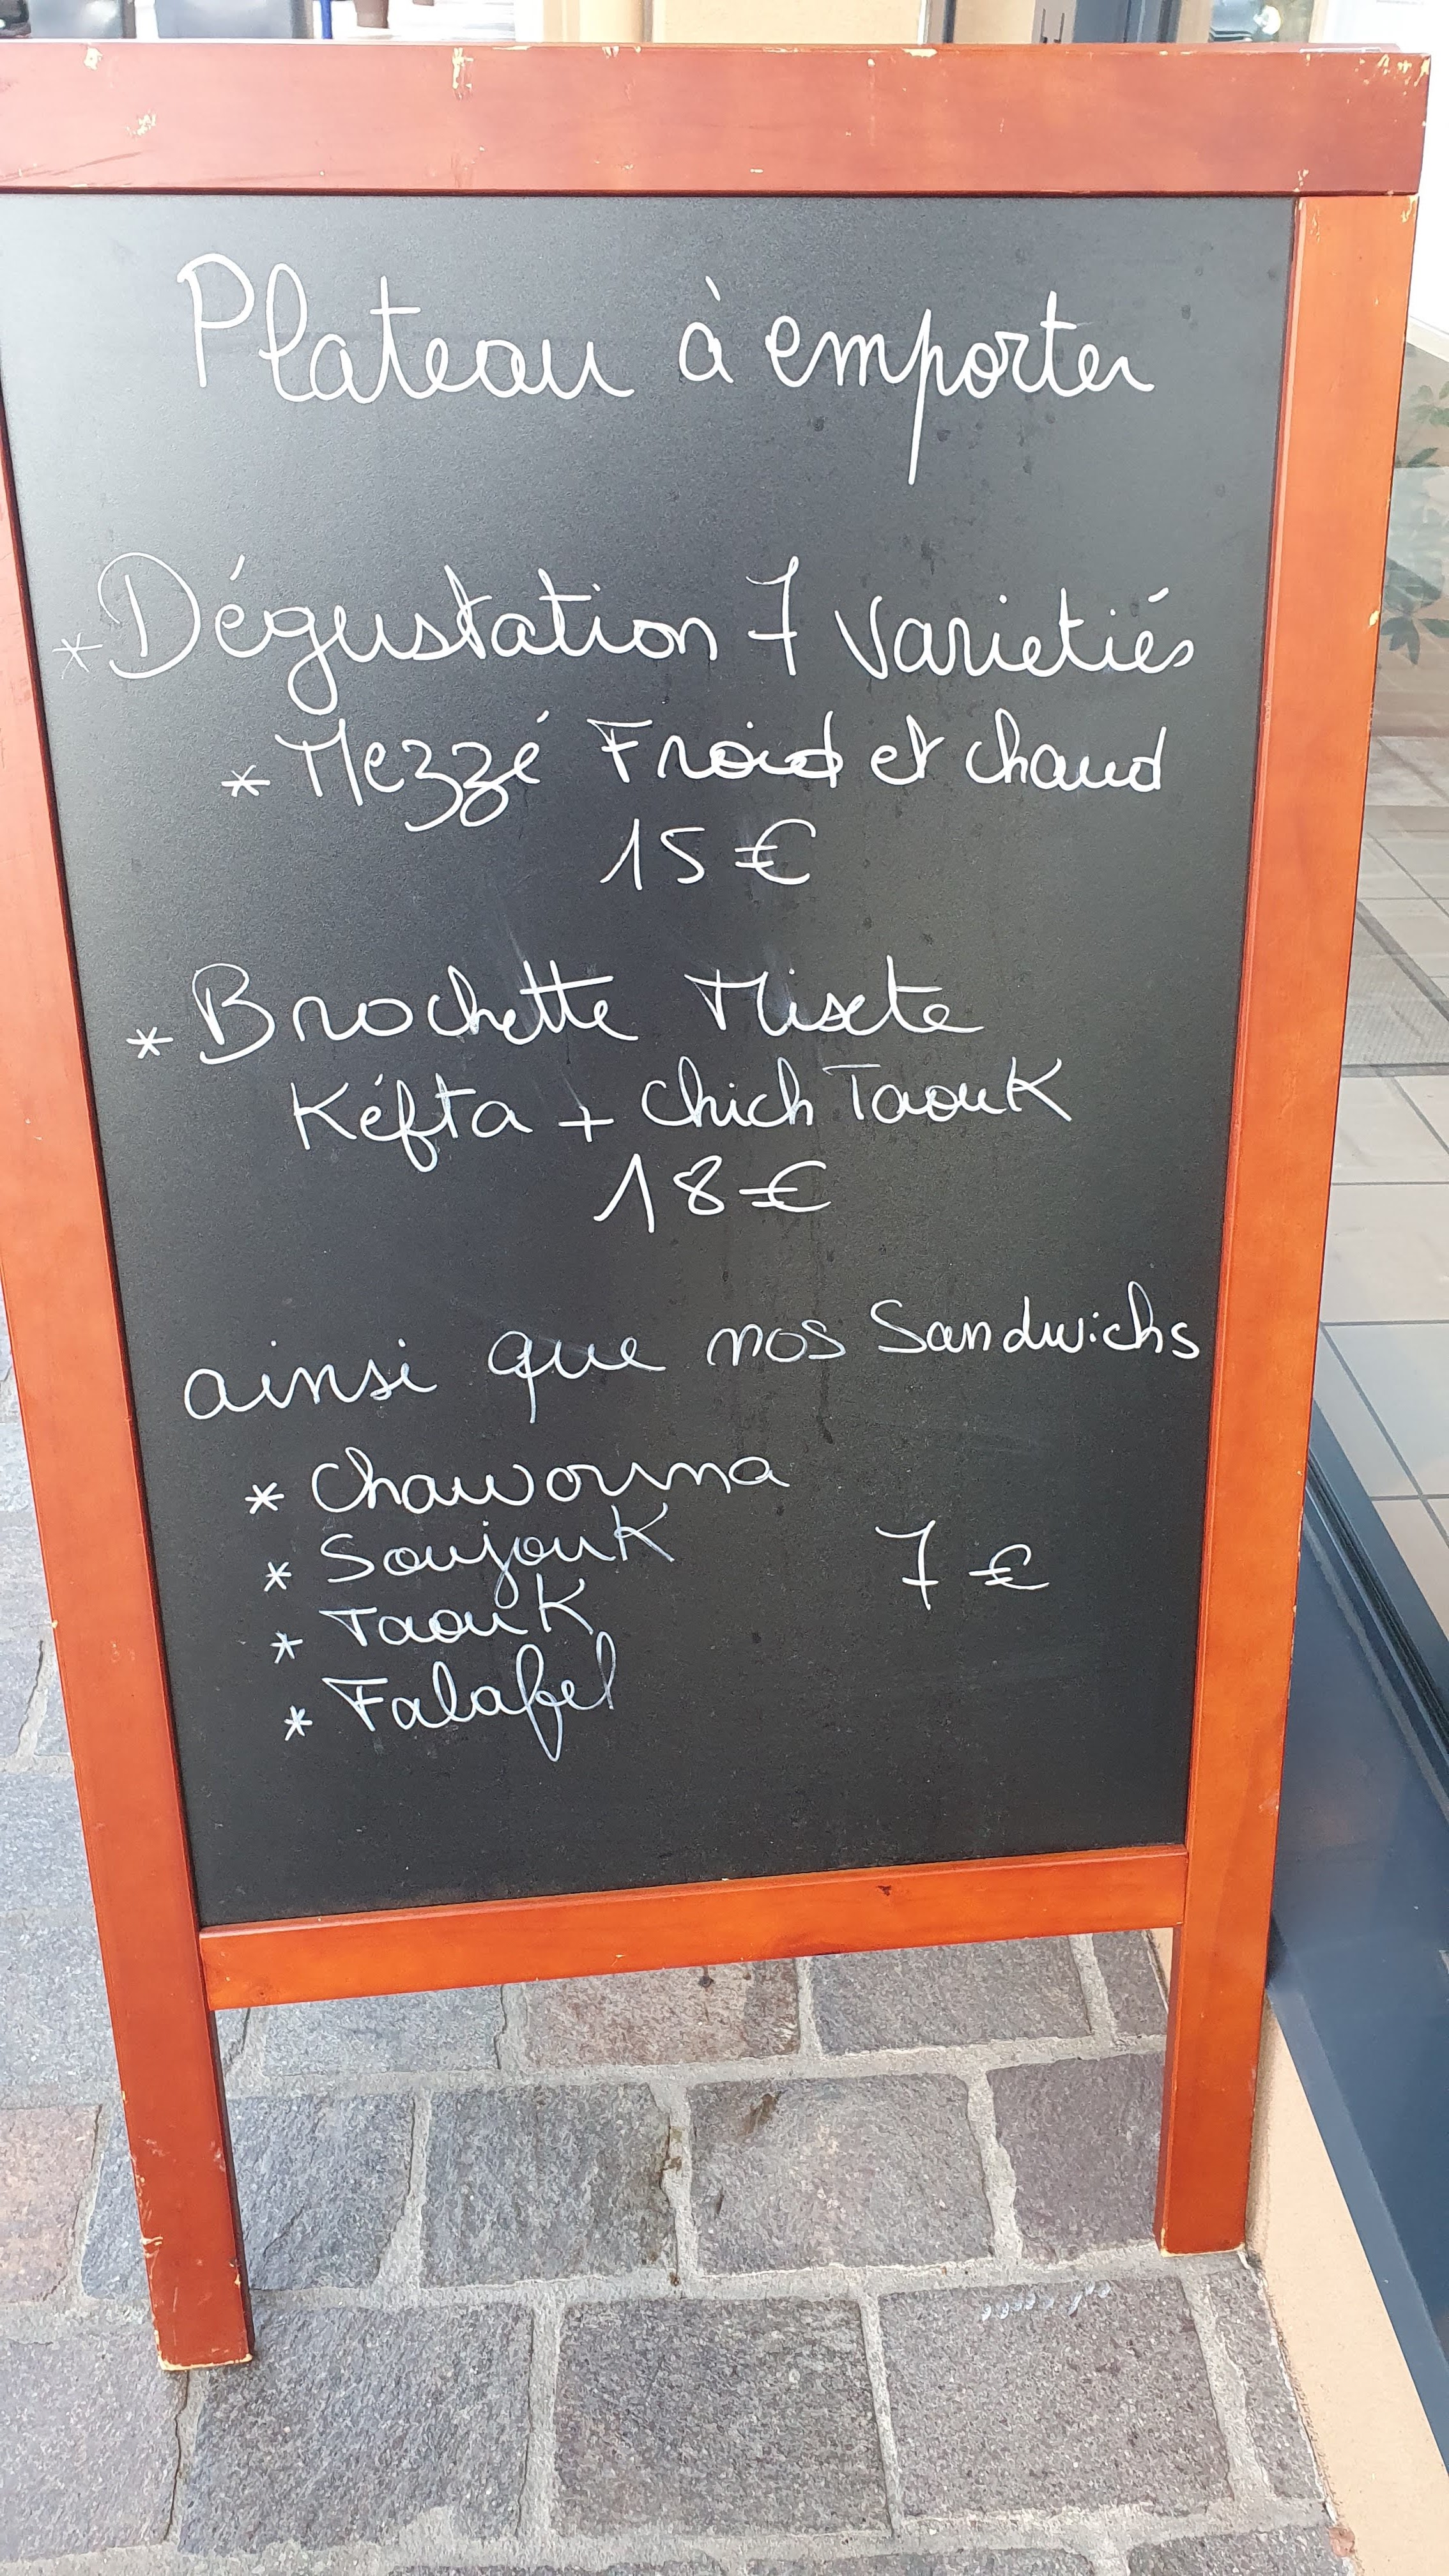 Plateau à emporter
* Dégustation 7 varietiés
* Mezzé Froid et chaud
15 €
* Brochette Mixte
Kéfta + chich Taouk
18 €
ainsi que nos Sandwichs
* Chaworma
* Soujouk
7 €
* Taouk
* Falafel